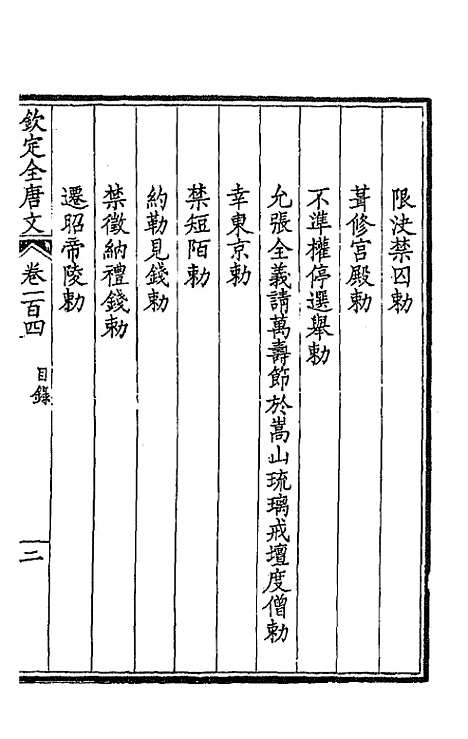 限決禁囚勅
葺修宮殿勅
不準權停選舉勅
允張全義請萬壽節於嵩山琉璃戒壇度僧勅
幸東京勅
禁短陌勅
約勒見錢勅
禁徵納禮錢勅
遷昭帝陵勅
欽定全唐文 卷一百四 目錄 二